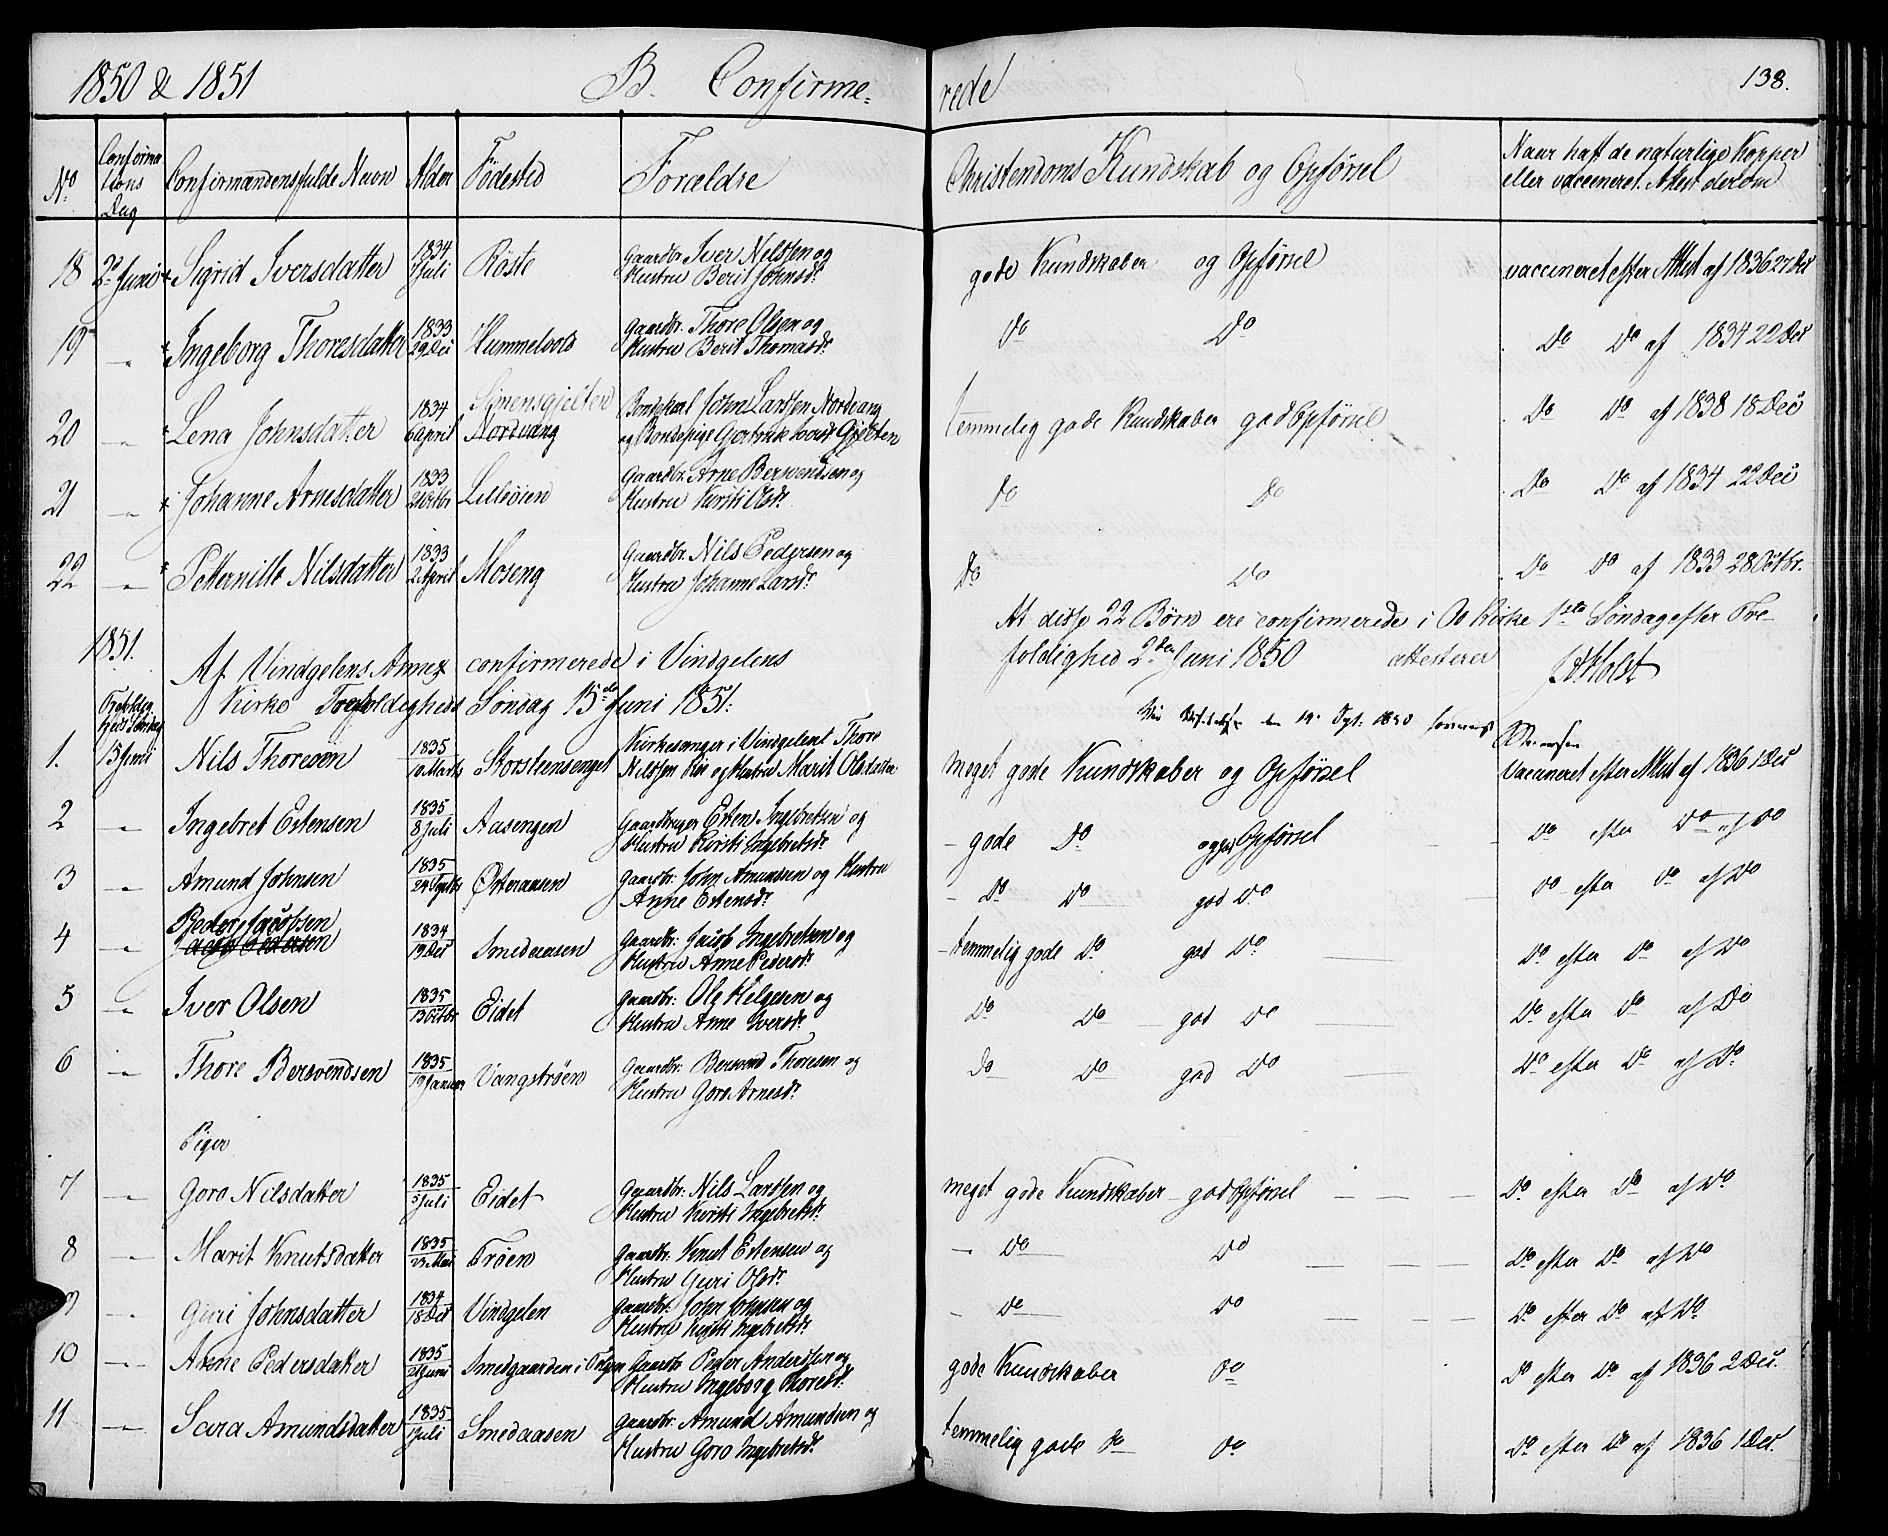 1850 & 1851 B. Confirme= rede 138.
No Confirmations Dag Confirmandens fulde Navn Alder Födested Forældre Christendoms Kundskab og Opførsel Naar haft de naturlige Kopper eller vaccineret. Attest derom
18 2den Juni Sigrid Iversdatter 1834 Juli Röste Gaardbr. Iver Nilssen og Hustru Berit Johnsdr gode Kundskaber og Opførsel vaccineret efter Attest af 1836 27 Dec
19 " Ingeborg Thoresdatter 1833 29 Dec Hummelvold Gaardbr. Thore Olsen og Hustru Berit Thomasdr Do Do Do Do af 1834 22 Dec
20 " Lena Johnsdatter 1834 6 April Simensgjelten Nordvang Bondekarl John Larssen Nordvang og Bondepige Gjertrude Gjelten temmelig gode Kundskaber god Opførsel Do Do af 1838 18 Dec
21 " Johanne Arnesdatter 1833 21 Octbr Lilleöien Gaardbr. Arne Bersvendsen og Hustru Kirsti Olsdr Do Do Do Do af 1834 22 Dec
22 " Petternille Nilsdatter 1833 2 April Moseng Gaardbr. Nils Pedersen og Hustru Johanne Larsdr Do Do Do Do af 1833 28 Octbr.
At disse 22 Børn ere confirmerede i Os Kirke 1ste Søndag efter Tre-
foldighed 2den Juni 1850 attesterer Holst
1851.
Af Vindgelens Annex confirmerede i Vindgelens
Kirke Trefoldigheds Søndag 15de Juni 1851:
den 14 Sept. 1850
1. Trefoldigheds Søndag 15 Juni Nils Thoresön 1835 10 Marts Storsteensenget Kirkesanger i Vindgelen Thore Nilssen Röe og Hustru Marit Olsdatter meget gode Kundskaber og Opførsel Vaccineret efter Attest af 1836 1 Dec
2 " Ingebret Estensen 1835 8 Juli Aasengen Gaardbruger Esten Ingebretsen og Hustru Kirsti Ingebretsdr - gode Do og god Opførsel Do efter Do af Do
3 " Amund Johnsen 1835 24 Septbr Österaasen Gaardbr: John Amundsen og Hustru Anne Estensdr - Do Do god Do Do efter Do af Do
4 " Peder Jacobsen 1834 19 Dec Smedaasen Gaardbr: Jacob Ingebretsen og Hustru Anne Pedersdr - temmelig gode Do god Do Do efter Do af Do
5 " Iver Olsen 1835 13 Octbr Eidet Gaardbr: Ole Helgesen og Hustru Anne Iversdr Do Do god Do Do efter Do af Do
6 " Thore Bersvendsen 1835 19 Januar Vangströen Gaardbr: Bersvend Thoresen og Hustru Goro Arnesdr Do Do god Do Do efter Do af Do
Piger
7 " Goro Nilsdatter 1835 5 Juli Eidet Gaardbr: Nils Larssen og Hustru Kirsti Ingebretsdr meget gode Kundskaber god Opførsel Do efter Do af Do
8 " Marit Knutsdatter 1835 Mai Tröen Gaardbr: Knut Estensen og Hustru Guri Olsdr - Do Do Do efter Do af Do
9 " Guri Johnsdatter 1834 18 Dec Vindgelen Gaardbr: John Johnsen og Hustru Kirsti Ingebretsdr - Do Do Do efter Do af Do
10 " Anne Pedersdatter 1835 21 Juni Smedgaarden i Tolgen Gaardbr Peder Anderssen og Hustru Ingeborg Thoresdr gode Kundskaber Do Do efter Do af 1836 2 Dec.
11 " Sara Amundsdatter 1835 1 Juli Smedaasen Gaardbr: Amund Amundsen og Hustru Goro Ingebretsdr temmelig gode Do Do Do efter Do af 1836 1 Dec.